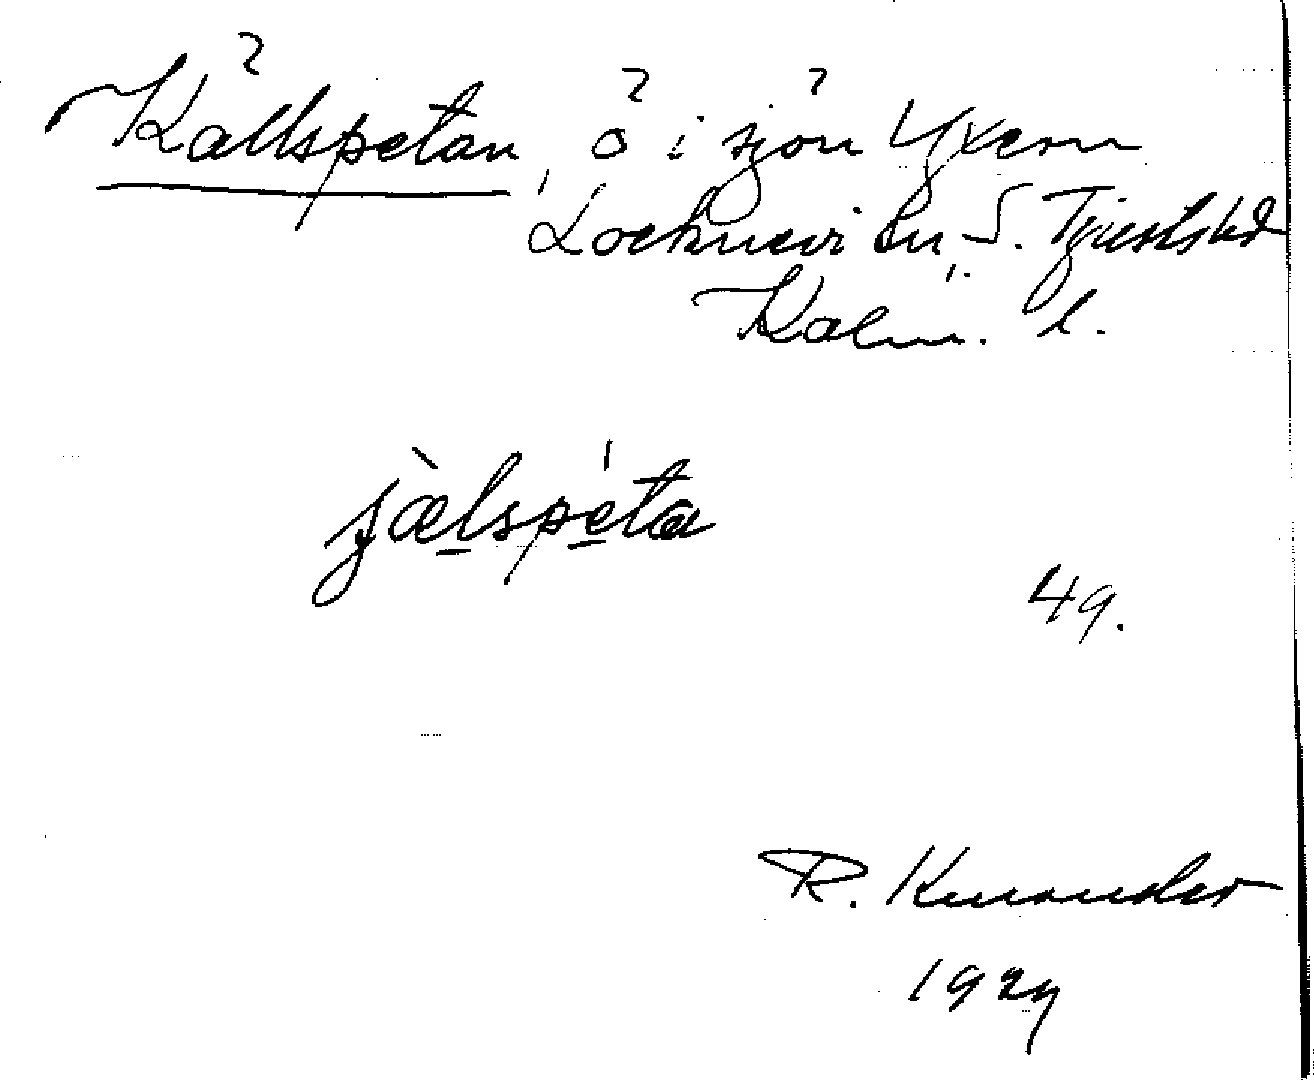 Källspetan, ö i sjön Yxern
Locknevi sn, S. Tjusts hd
Kalm. l.
jælspeta
49.
R. Knrander
1927